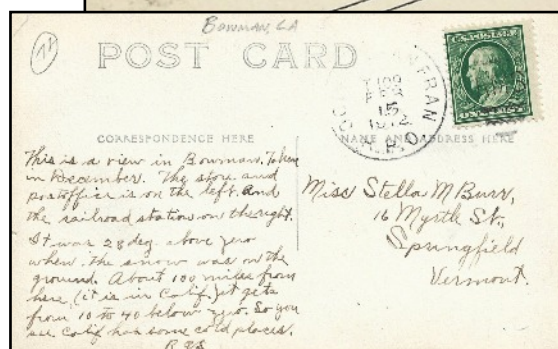 Bowman, CA
POST CARD
FEB
15
1912
U.S. POSTAGE
CORRESPONDENCE HERE
NAME AND ADDRESS HERE
This is a view in Bowman. Taken
in December. The store and
postoffice is on the left. and
the railroad station on the right.
It was 28 deg. above zero
when the snow was on the
ground. About 100 miles from
here, (it is in Calif.) it gets
from 10 to 40 below zero. So you
see Calif has some cold places.
Miss Stella M Burr,
16 Myrtle St.,
Springfield
Vermont.